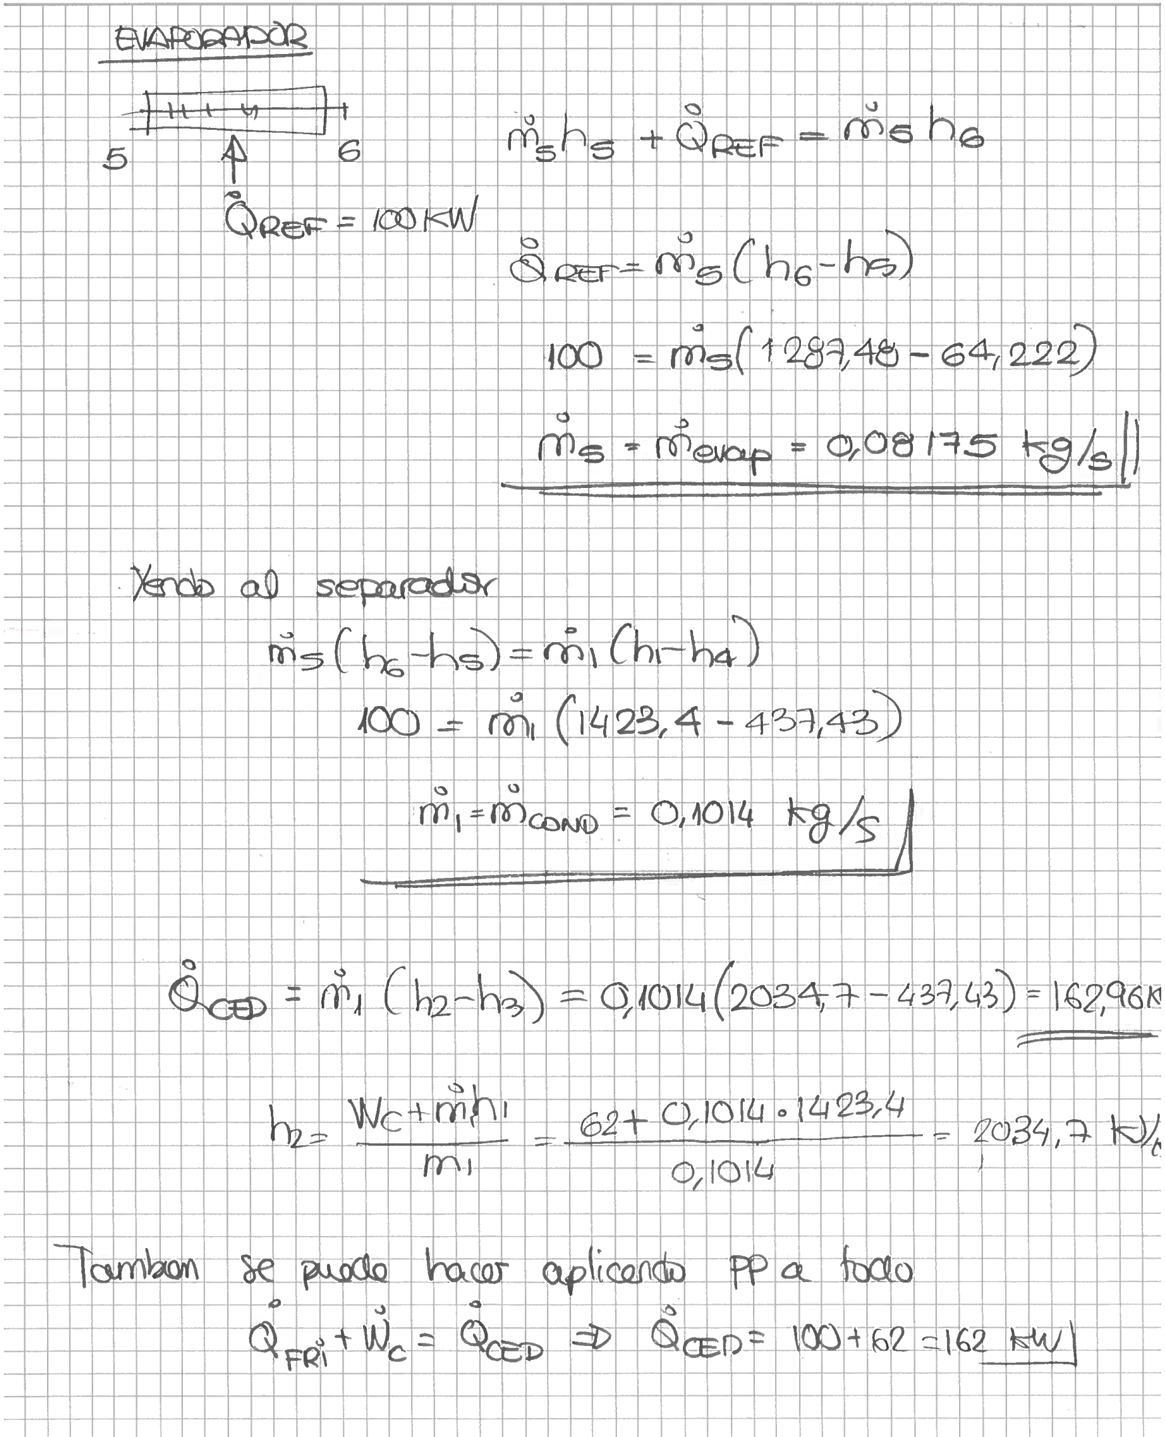 EVAPORADOR
5
6
Q̊REF = 100 KW
m̊5 h5 + Q̊REF = m̊5 h6
Q̊REF = m̊5 (h6 - h5)
100 = m̊5 (1287,48 - 64,222)
m̊5 = m̊evap = 0,08175 kg/s
Yendo al separador
m̊5 (h6 - h5) = m̊1 (h1 - h4)
100 = m̊1 (1423,4 - 437,43)
m̊1 = m̊COND = 0,1014 kg/s
Q̊CED = m̊1 (h2 - h3) = 0,1014 (2034,7 - 437,43) = 162,96 K
h2 = (Wc + m̊1h1) / m1 = (62 + 0,1014 · 1423,4) / 0,1014 = 2034,7 KJ/
Tambien se puede hacer aplicando PP a todo
Q̊FRi + W̊c = Q̊CED ⇒ Q̊CED = 100 + 62 = 162 KW